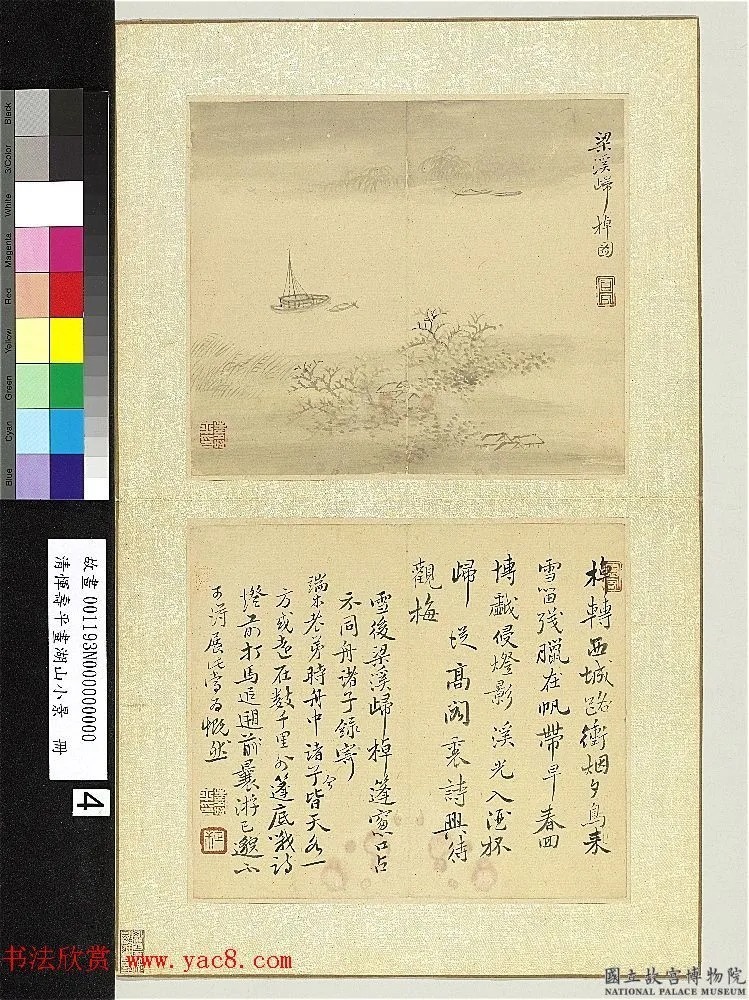 梁溪歸棹圖
棹轉西城路衝烟夕鳥來
雪留殘臘在帆帶早春回
博戲侵燈影溪光入酒杯
歸從高閣裏詩興待
觀梅
雪後梁溪歸棹篷窓口占
不同舟諸子錄寄
端木老弟時舟中諸子今皆天各一
方或遠在數千里外篷底戰詩
燈前打馬追迴前曩游已邈不
可得展此當為慨然
Black
3/Color
White
Magenta
Red
Yellow
Green
Cyan
Blue
故畫 001193N000000000
清惲壽平畫湖山小景 冊
4
书法欣赏 www.yac8.com
國立故宮博物院
NATIONAL PALACE MUSEUM